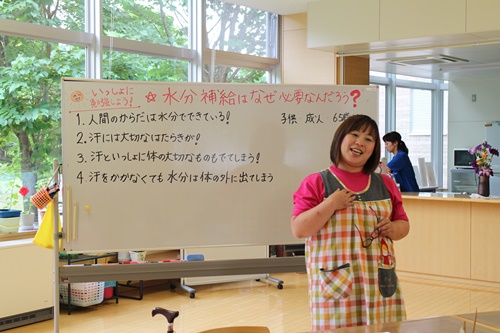 いっしょに
勉強しよう！
☆水分補給はなぜ必要なんだろう？
1. 人間のからだは水分でできている！
子供 成人 65才
2. 汗には大切なはたらきが！
3. 汗といっしょに体の大切なものもでてしまう！
4. 汗をかかなくても水分は体の外に出てしまう